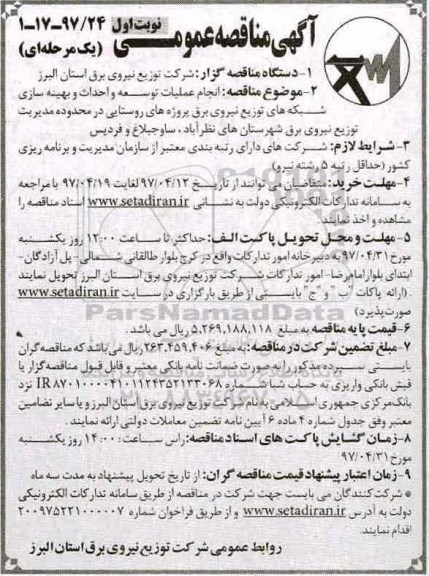 آگهی مناقصه عمومی
نوبت اول
۱-۱۷-۹۷/۲۴
(یک مرحله‌ای)
۱-دستگاه مناقصه گزار: شرکت توزیع نیروی برق استان البرز
۲-موضوع مناقصه: انجام عملیات توسعه و احداث و بهینه سازی
شبکه های توزیع نیروی برق پروژه های روستایی در محدوده مدیریت
توزیع نیروی برق شهرستان های نظرآباد، ساوجبلاغ و فردیس
۳-شرایط لازم: شرکت های دارای رتبه بندی معتبر از سازمان مدیریت و برنامه ریزی
کشور (حداقل رتبه ۵ رشته نیرو)
۴-مهلت خرید: متقاضیان می توانند از تاریخ ۹۷/۰۴/۱۲ لغایت ۹۷/۰۴/۱۹ با مراجعه
به سامانه تدارکات الکترونیکی دولت به نشانی www.setadiran.ir اسناد مناقصه را
مشاهده و اخذ نمایند.
۵-مهلت و محل تحویل پاکت الف: حداکثر تا ساعت ۱۲:۰۰ روز یکشنبه
مورخ ۹۷/۰۴/۳۱ به دبیرخانه امور تدارکات واقع در کرج بلوار طالقانی شمالی-پل آزادگان-
ابتدای بلوار امام رضا-امور تدارکات شرکت توزیع نیروی برق استان البرز تحویل نمایند
.(ارائه پاکات "ب" و "ج" بایستی از طریق بارگزاری در سایت www.setadiran.ir
صورت پذیرد)
۶-قیمت پایه مناقصه به مبلغ ۵.۲۶۹.۱۸۸.۱۱۸ ریال می باشد.
۷-مبلغ تضمین شرکت در مناقصه: به مبلغ ۲۶۳.۴۵۹.۴۰۶ ریال می باشد که مناقصه گران
بایستی سپرده مذکور را به صورت ضمانت نامه بانکی معتبر و قابل قبول مناقصه گزار یا
فیش بانکی واریزی به حساب شبا شماره IR۸۷۰۱۰۰۰۰۴۱۰۱۱۲۴۳۵۲۱۳۳۰۶۸ نزد
بانک مرکزی جمهوری اسلامی به نام شرکت توزیع نیروی برق استان البرز و یا سایر تضامین
معتبر وفق جدول شماره ۴ ماده ۶ آیین نامه تضمین معاملات دولتی ارائه نمایند.
۸-زمان گشایش پاکت های اسناد مناقصه: راس ساعت: ۱۴:۰۰ روز یکشنبه
مورخ ۹۷/۰۴/۳۱
۹-زمان اعتبار پیشنهاد قیمت مناقصه گران: از تاریخ تحویل پیشنهاد به مدت سه ماه
* شرکت کنندگان می بایست جهت شرکت در مناقصه از طریق سامانه تدارکات الکترونیکی
دولت به آدرس www.setadiran.ir و از طریق فراخوان شماره ۲۰۰۹۷۵۲۲۱۰۰۰۰۰۷
اقدام نمایند.
روابط عمومی شرکت توزیع نیروی برق استان البرز
ParsNamadData